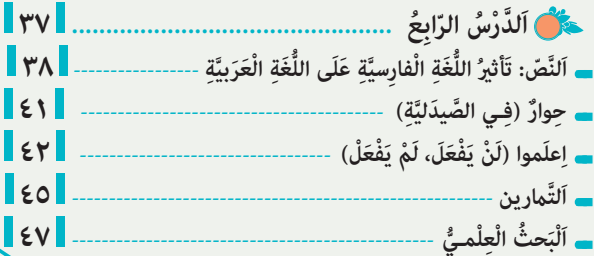 اَلدَّرْسُ الرّابِعُ ................................................ ٣٧
اَلنَّصّ: تَأثيرُ اللُّغَةِ الْفارِسيَّةِ عَلَى اللُّغَةِ الْعَرَبيَّةِ ------------------- ٣٨
حِوارٌ (فِـي الصَّيدَليَّةِ) ---------------------------------------------- ٤١
اِعلَموا (لَنْ يَفْعَلَ، لَمْ يَفْعَلْ) -------------------------------------- ٤٢
اَلتَّمارين ---------------------------------------------------------------- ٤٥
اَلْبَحثُ الْعِلْمـيُّ ------------------------------------------------------- ٤٧